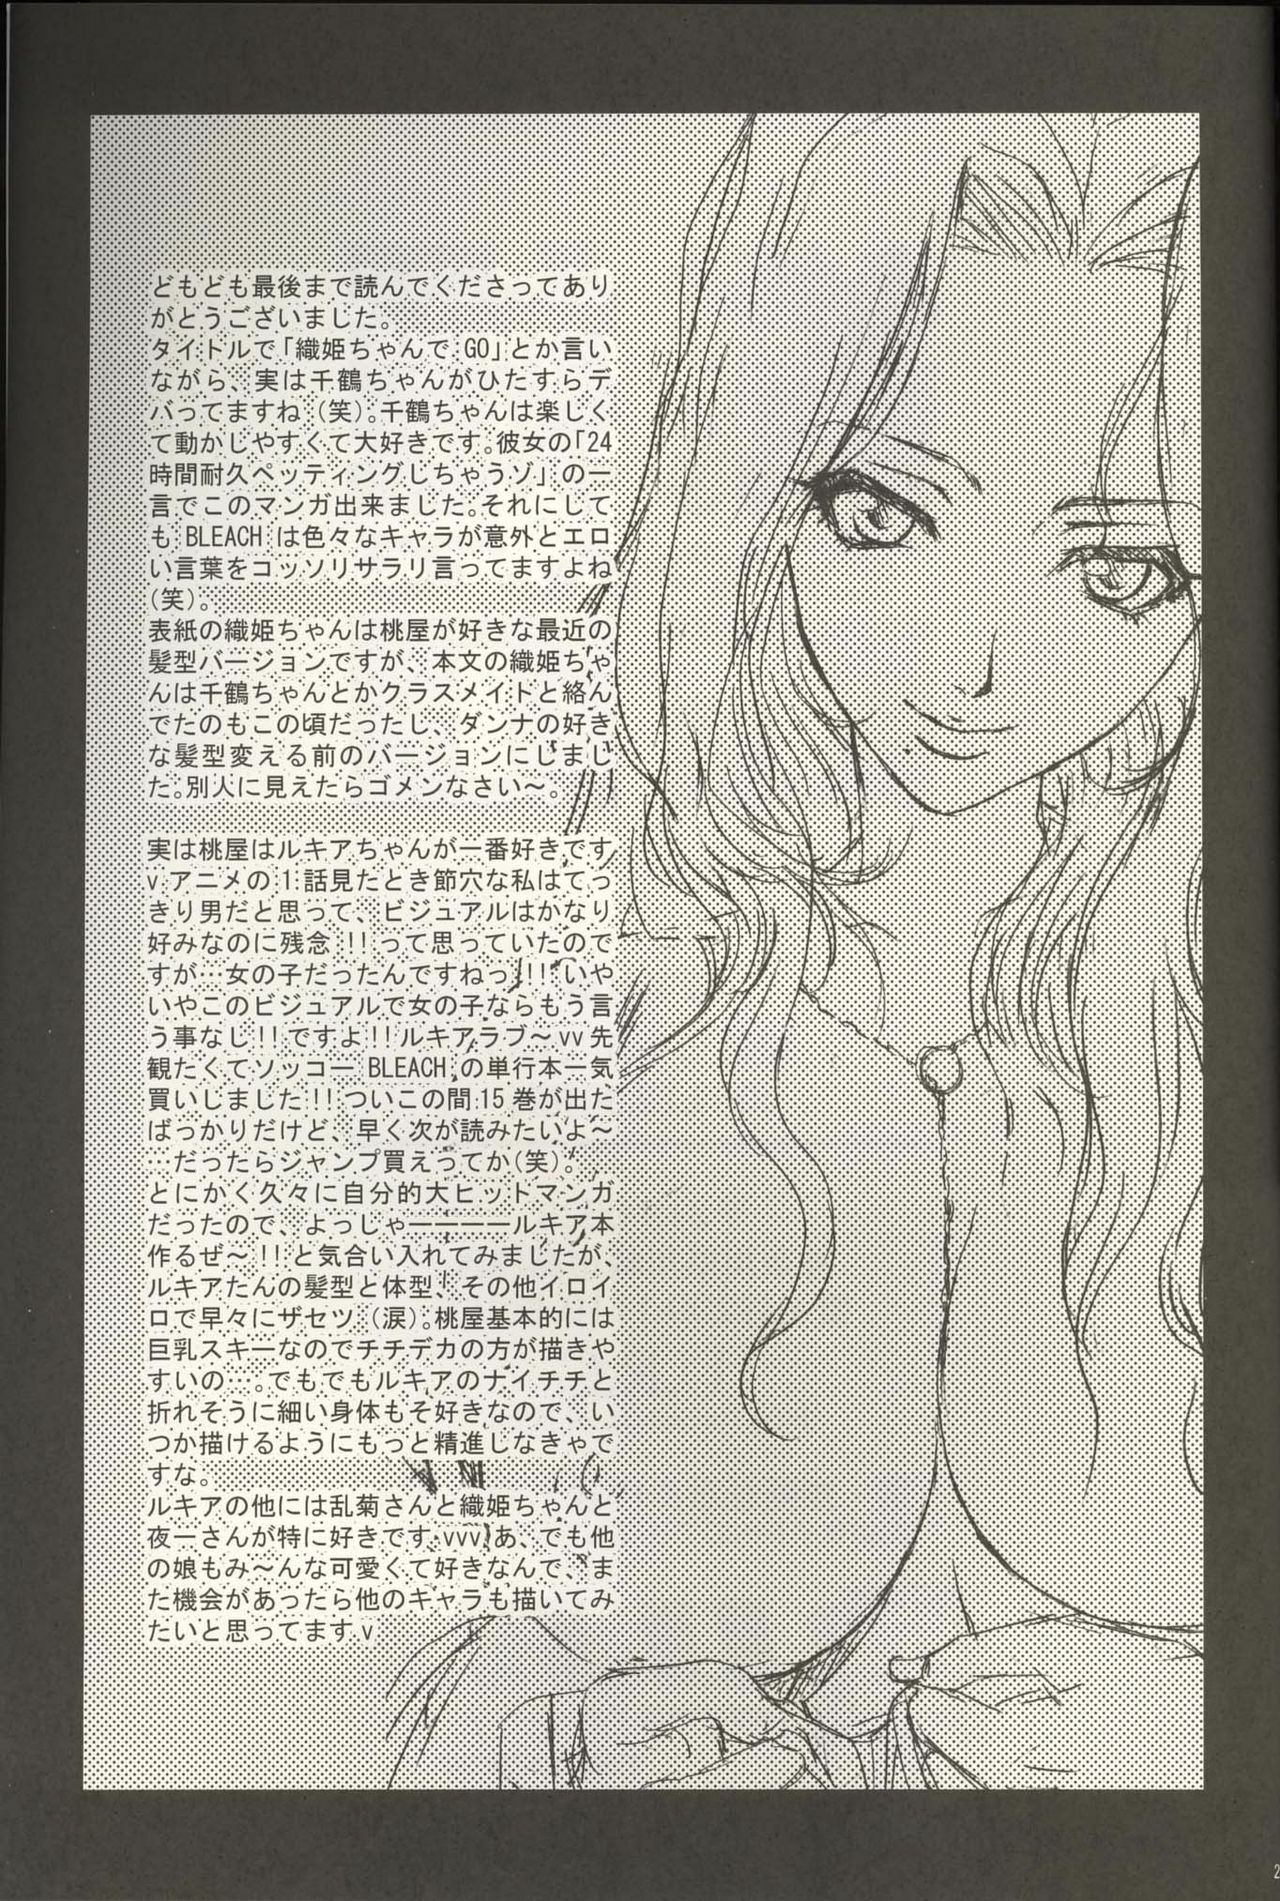 どもども最後まで読んでくださってあり
がとうございました。
タイトルで「織姫ちゃんで GO」とか言い
ながら、実は千鶴ちゃんがひたすらデ
バってますね（笑）。千鶴ちゃんは楽しく
て動かしやすくて大好きです。彼女の「24
時間耐久ペッティングしちゃうゾ」の一
言でこのマンガ出来ました。それにして
も BLEACH は色々なキャラが意外とエロ
い言葉をコッソリサラリ言ってますよね
（笑）。
表紙の織姫ちゃんは桃屋が好きな最近の
髪型バージョンですが、本文の織姫ちゃ
んは千鶴ちゃんとかクラスメイドと絡ん
でたのもこの頃だったし、ダンナの好き
な髪型変える前のバージョンにしまし
た。別人に見えたらゴメンなさい～。
実は桃屋はルキアちゃんが一番好きです
v アニメの 1 話見たとき節穴な私はてっ
きり男だと思って、ビジュアルはかなり
好みなのに残念！！って思っていたので
すが…女の子だったんですねっ！！いや
いやこのビジュアルで女の子ならもう言
う事なし！！ですよ！！ルキアラブ～vv 先
観たくてソッコー BLEACH の単行本一気
買いしました！！ついこの間 15 巻が出た
ばっかりだけど、早く次が読みたいよ～
…だったらジャンプ買えってか（笑）。
とにかく久々に自分的大ヒットマンガ
だったので、よっしゃーーーールキア本
作るぜ～！！と気合い入れてみましたが、
ルキアたんの髪型と体型、その他イロイ
ロで早々にザセツ（涙）。桃屋基本的には
巨乳スキーなのでチチデカの方が描きや
すいの…。でもでもルキアのナイチチと
折れそうに細い身体もそ好きなので、い
つか描けるようにもっと精進しなきゃで
すな。
ルキアの他には乱菊さんと織姫ちゃんと
夜一さんが特に好きです vvv あ、でも他
の娘もみ～んな可愛くて好きなんで、ま
た機会があったら他のキャラも描いてみ
たいと思ってます v